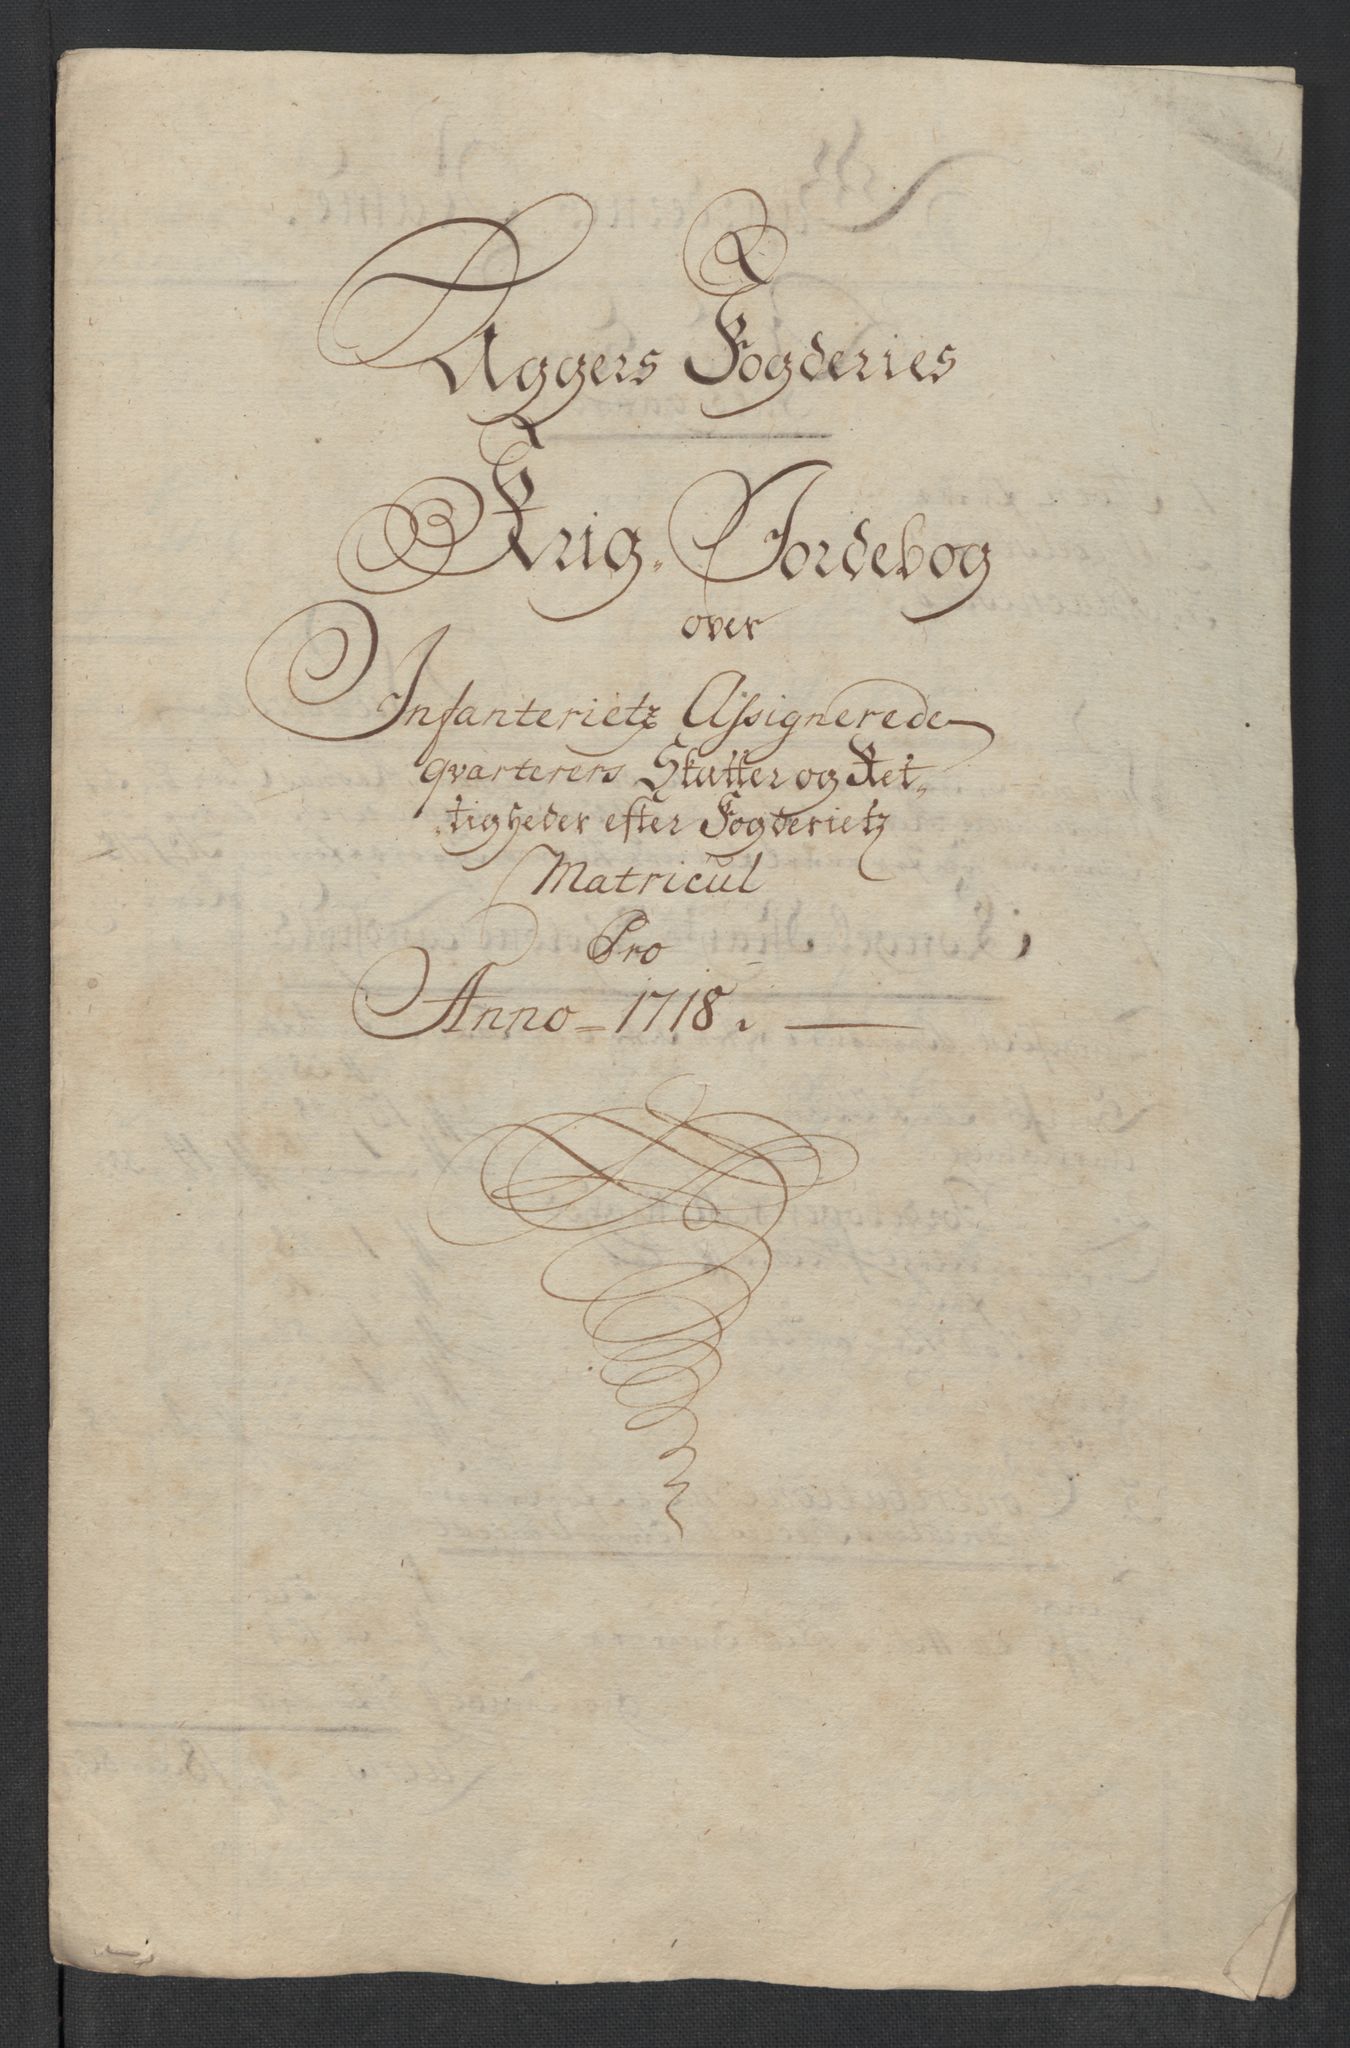 Aggers Fogderies
Krig-Jordebog
over
Infanterietz Assignerede
qvarterers Skatter og Ret-
tigheder efter Fogderietz
Matricul
Pro
Anno 1718.